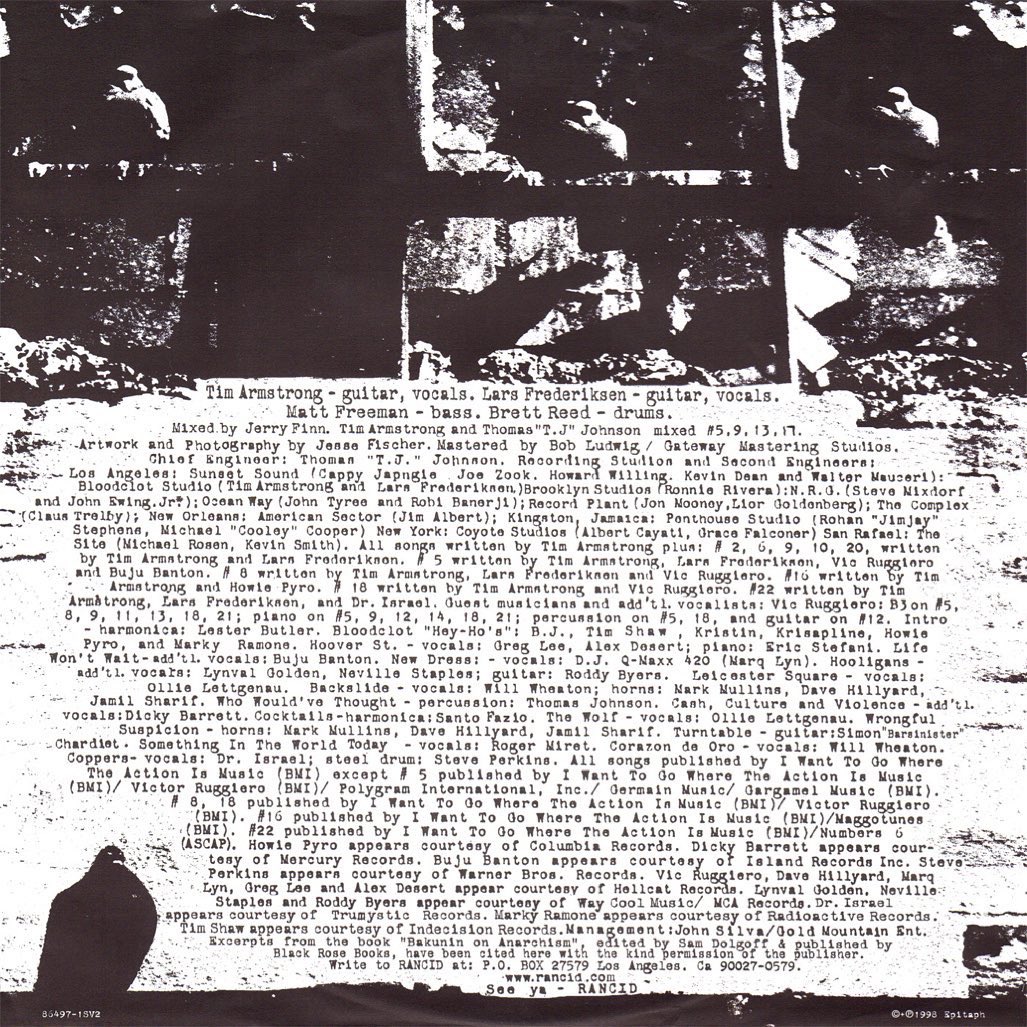 Tim Armstrong - guitar, vocals. Lars Frederiksen - guitar, vocals.
Matt Freeman - bass. Brett Reed - drums.
Mixed by Jerry Finn. Tim Armstrong and Thomas"T.J" Johnson mixed #5,9,13,17.
Artwork and Photography by Jesse Fischer. Mastered by Bob Ludwig/ Gateway Mastering Studios.
Chief Engineer: Thomas "T.J." Johnson. Recording Studios and Second Engineers:
Los Angeles: Sunset Sound (Cappy Japngie, Joe Zook. Howard Willing. Kevin Dean and Walter Mauceri):
Bloodclot Studio (Tim Armstrong and Lars Frederiksen,)Brooklyn Studios (Ronnie Rivera):N.R.G.(Steve Mixdorf
and John Ewing.Jr*);Ocean Way (John Tyree and Robi Banerji);Record Plant (Jon Mooney,Lior Goldenberg); The Complex
(Claus Trelby); New Orleans: American Sector (Jim Albert); Kingston, Jamaica: Penthouse Studio (Rohan "Jimjay"
Stephens, Michael "Cooley" Cooper) New York: Coyote Studios (Albert Cayati, Grace Falconer) San Rafael: The
Site (Michael Rosen, Kevin Smith). All songs written by Tim Armstrong plus: # 2, 6, 9, 10, 20, written
by Tim Armstrong and Lars Frederiksen. # 5 written by Tim Armstrong, Lars Frederiksen, Vic Ruggiero
and Buju Banton. # 8 written by Tim Armstrong, Lars Frederiksen and Vic Ruggiero. #16 written by Tim
Armstrong and Howie Pyro. # 18 written by Tim Armstrong and Vic Ruggiero. #22 written by Tim
Armstrong, Lars Frederiksen, and Dr. Israel. Guest musicians and add'tl. vocalists: Vic Ruggiero: B3 on #5,
8, 9, 11, 13, 18, 21; piano on #5, 9, 12, 14, 18, 21; percussion on #5, 18, and guitar on #12. Intro
- harmonica: Lester Butler. Bloodclot "Hey-Ho's": B.J., Tim Shaw , Kristin, Krisapline, Howie
Pyro, and Marky Ramone. Hoover St. - vocals: Greg Lee, Alex Desert; piano: Eric Stefani. Life
Won't Wait-add'tl. vocals: Buju Banton. New Dress: - vocals: D.J. Q-Maxx 420 (Marq Lyn). Hooligans -
add'tl. vocals: Lynval Golden, Neville Staples; guitar: Roddy Byers. Leicester Square - vocals:
Ollie Lettgenau. Backslide - vocals: Will Wheaton; horns: Mark Mullins, Dave Hillyard,
Jamil Sharif. Who Would've Thought - percussion: Thomas Johnson. Cash, Culture and Violence - add'tl.
vocals:Dicky Barrett. Cocktails-harmonica:Santo Fazio. The Wolf - vocals: Ollie Lettgenau. Wrongful
Suspicion - horns: Mark Mullins, Dave Hillyard, Jamil Sharif. Turntable - guitar:Simon"Barsinister"
Chardiet. Something In The World Today - vocals: Roger Miret. Corazon de Oro - vocals: Will Wheaton.
Coppers- vocals: Dr. Israel; steel drum: Steve Perkins. All songs published by I Want To Go Where
The Action Is Music (BMI) except # 5 published by I Want To Go Where The Action Is Music
(BMI)/ Victor Ruggiero (BMI)/ Polygram International, Inc./ Germain Music/ Gargamel Music (BMI).
# 8, 18 published by I Want To Go Where The Action Is Music (BMI)/ Victor Ruggiero
(BMI). #16 published by I Want To Go Where The Action Is Music (BMI)/Maggotunes
(BMI). #22 published by I Want To Go Where The Action Is Music (BMI)/Numbers 6
(ASCAP). Howie Pyro appears courtesy of Columbia Records. Dicky Barrett appears cour-
tesy of Mercury Records. Buju Banton appears courtesy of Island Records Inc. Steve
Perkins appears courtesy of Warner Bros. Records. Vic Ruggiero, Dave Hillyard, Marq
Lyn, Greg Lee and Alex Desert appear courtesy of Hellcat Records. Lynval Golden, Neville
Staples and Roddy Byers appear courtesy of Way Cool Music/ MCA Records.Dr. Israel
appears courtesy of Trumystic Records. Marky Ramone appears courtesy of Radioactive Records.
Tim Shaw appears courtesy of Indecision Records.Management:John Silva/Gold Mountain Ent.
Excerpts from the book "Bakunin on Anarchism", edited by Sam Dolgoff & published by
Black Rose Books, have been cited here with the kind permission of the publisher.
Write to RANCID at: P.O. BOX 27579 Los Angeles. Ca 90027-0579.
www.rancid.com
See ya - RANCID
86497-1SV2
©+℗1998 Epitaph